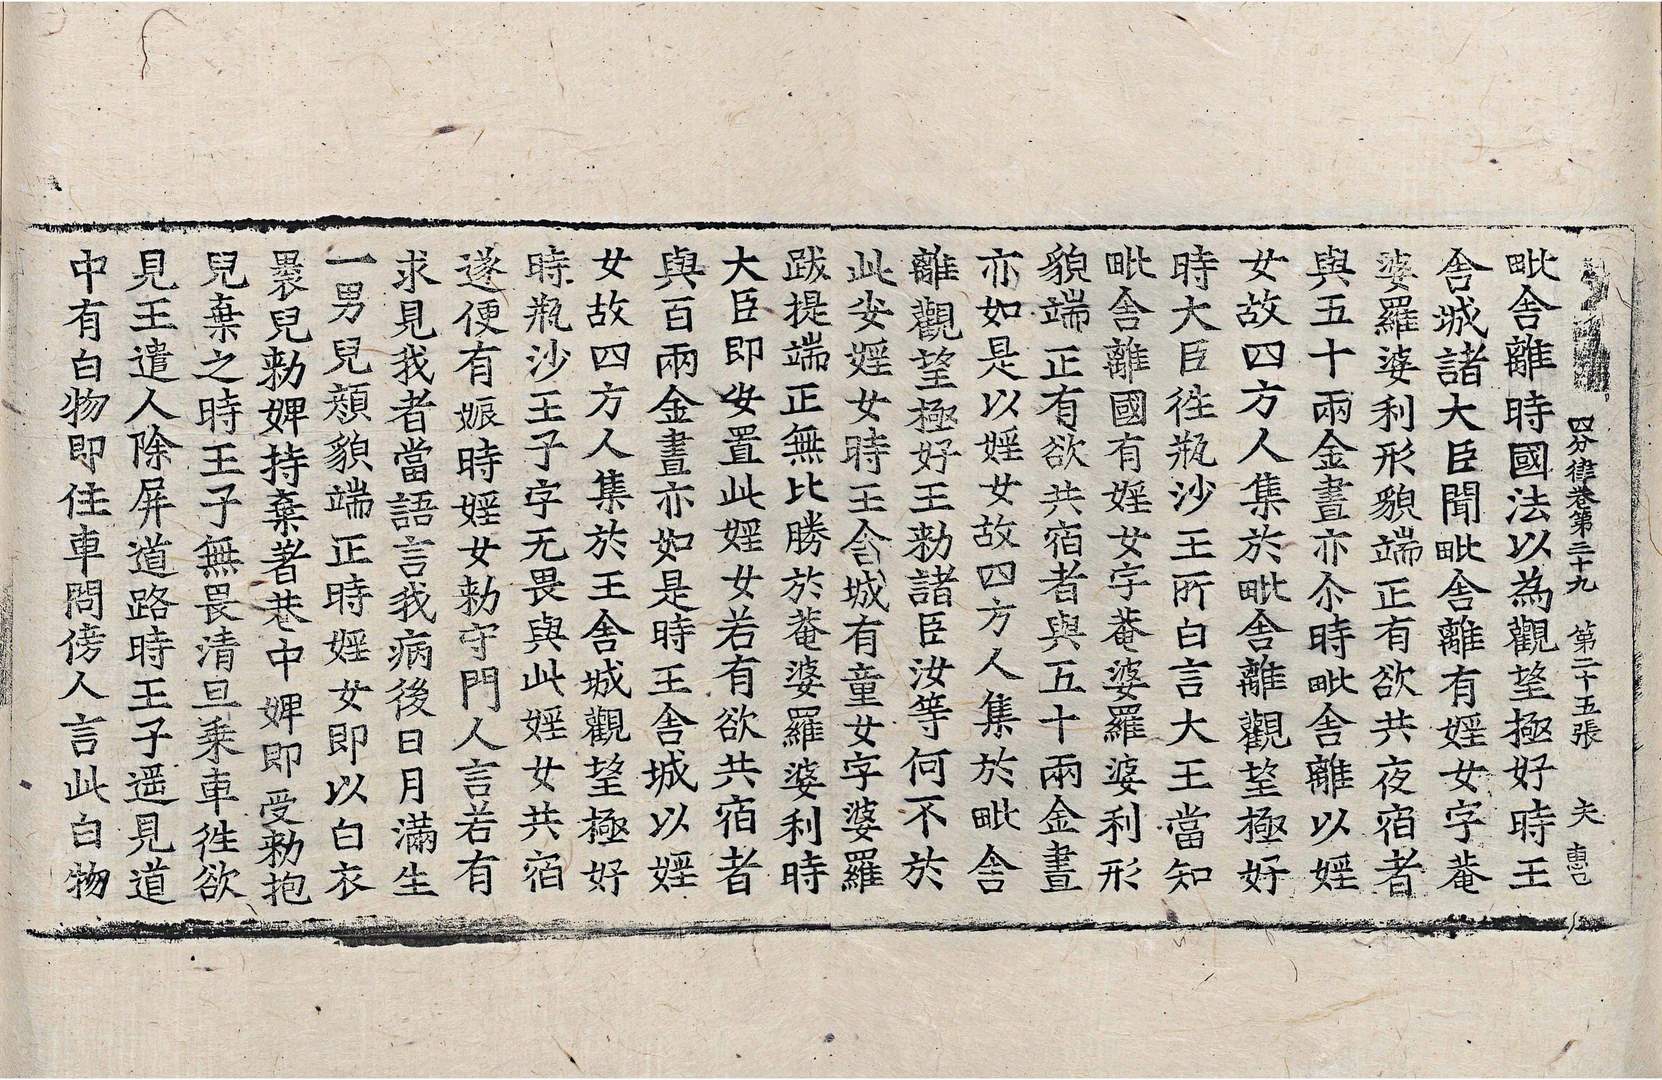 四分律卷第三十九 第二十五張 夫 惠已
毗舍離時國法以為觀望極好時王
舍城諸大臣聞毗舍離有婬女字菴
婆羅婆利形貌端正有欲共夜宿者
與五十兩金晝亦尒時毗舍離以婬
女故四方人集於毗舍離觀望極好
時大臣往瓶沙王所白言大王當知
毗舍離國有婬女字菴婆羅婆利形
貌端正有欲共宿者與五十兩金晝
亦如是以婬女故四方人集於毗舍
離觀望極好王勑諸臣汝等何不於
此安婬女時王舍城有童女字婆羅
跋提端正無比勝於菴婆羅婆利時
大臣即安置此婬女若有欲共宿者
與百兩金晝亦如是時王舍城以婬
女故四方人集於王舍城觀望極好
時瓶沙王子字无畏與此婬女共宿
遂便有娠時婬女勑守門人言若有
求見我者當語言我病後日月滿生
一男兒顏貌端正時婬女即以白衣
褁兒勑婢持棄著巷中婢即受勑抱
兒棄之時王子無畏清旦乗車徃欲
見王遣人除屏道路時王子遥見道
中有白物即住車問傍人言此白物